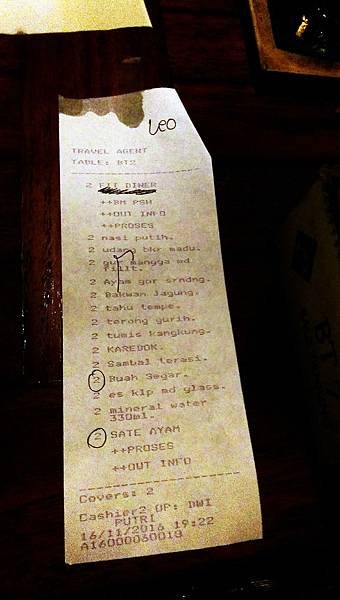 Leo
TRAVEL AGENT
TABLE: BT2
2 FIT DINER
++BM PSH
++OUT INFO
++PROSES
2 nasi putih.
2 udang bkr madu.
2 gur mangga md
fillt.
2 Ayam gor srndng.
2 Bakwan Jagung.
2 tahu tempe.
2 terong gurih.
2 tumis kangkung.
2 KAREDOK.
2 Sambal terasi.
2 Buah Segar.
2 es klp md glass.
2 mineral water
330ml.
2 SATE AYAM
++PROSES
++OUT INFO
Covers: 2
Cashier2 OP: DWI
PUTRI
16/11/2016 19:22
AI6000060018